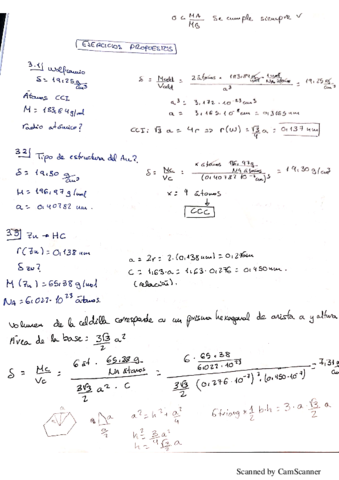 0 < MA/MB Se cumple siempre V
EJERCICIOS PROPUESTOS
3.1) Wolframio
δ = 19,25 g/cm³
Átomos CCI
M = 183,84 g/mol
radio atómico?
a = 3.165.10⁻⁸ cm = 0,3165 nm
CCI: √3 a = 4r ⇒ r(W) = √3/4 a = 0.137 nm
3.2) Tipo de estructura del Au?
δ = 19,30 g/cm³
M = 196,97 g/mol
a = 0.40782 nm
δ = Mc/Vc = = 19,30 g/cm³
x = 4 átomos
CCC
3.3) Zn → HC
r(Zn) = 0,138 nm
δ Zn?
M (Zn) = 65,38 g/mol
NA = 6.023.10²³ átomos
a = 2r = 2.(0.138 nm) = 0,276 nm
C = 1,63.a = 1,63.0,276 = 0,450 nm.
(relación).
Volumen de la celdilla corresponde a un prisma hexagonal de arista a y altura
Área de la base: 3√3/2 a²
δ = Mc/Vc = 6 át. 65.38 g/NA átomos / 3√3/2 a² . C = 6 . 65.38/6.023.10²³ / 3√3/2 (0.276.10⁻⁷)² . (0,450.10⁻⁷) = 7,31 g/cm³
a² = h² + a²/4
h² = 3/4 a²
h = √3/2 a
6 triang. 1/2 b.h = 3.a √3/2 a
Scanned by CamScanner